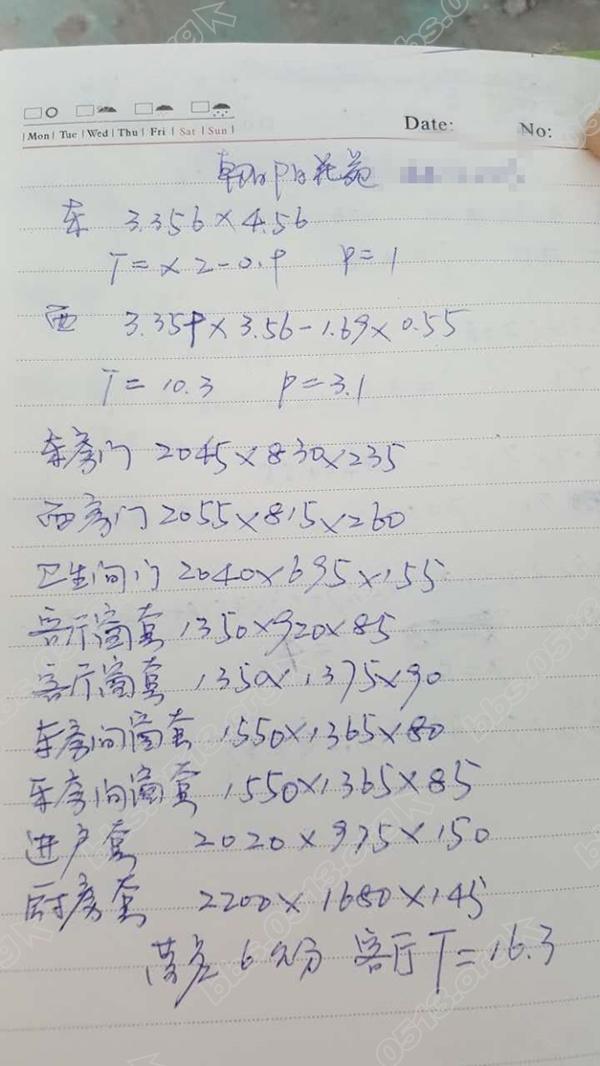 Mon Tue Wed Thu Fri Sat Sun
Date: No:
朝阳花苑
东 3.356×4.56
T=×2-0.9 P=1
西 3.359×3.56-1.69×0.55
T=10.3 P=3.1
东房门 2045×830×235
西房门 2055×815×260
卫生间门 2040×695×155
客厅窗套 1350×920×85
客厅窗套 1350×1375×90
东房间窗套 1550×1365×80
东房间窗套 1550×1365×85
进户套 2020×975×150
厨房套 2200×1680×145
落差6公分 客厅T=16.3
bbs.0513.org